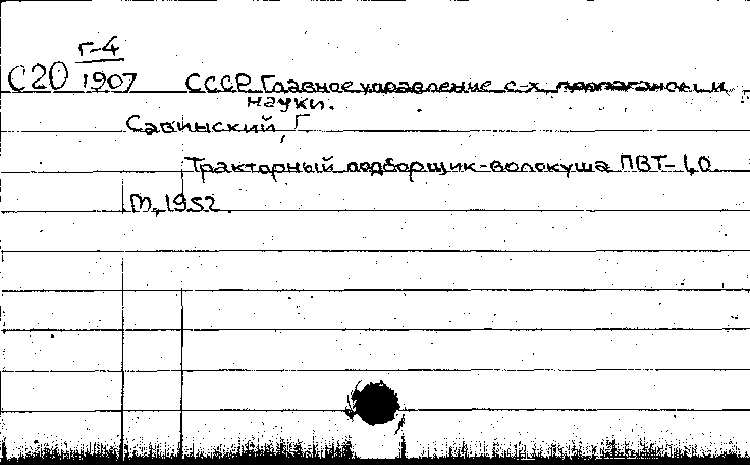 Г-4
С20 1907 СССР. Главное управление с-х пропаганды и
науки.
Савинский, Г.
Тракторный подборщик-волокуша ПВТ-1,0.
М., 1952.